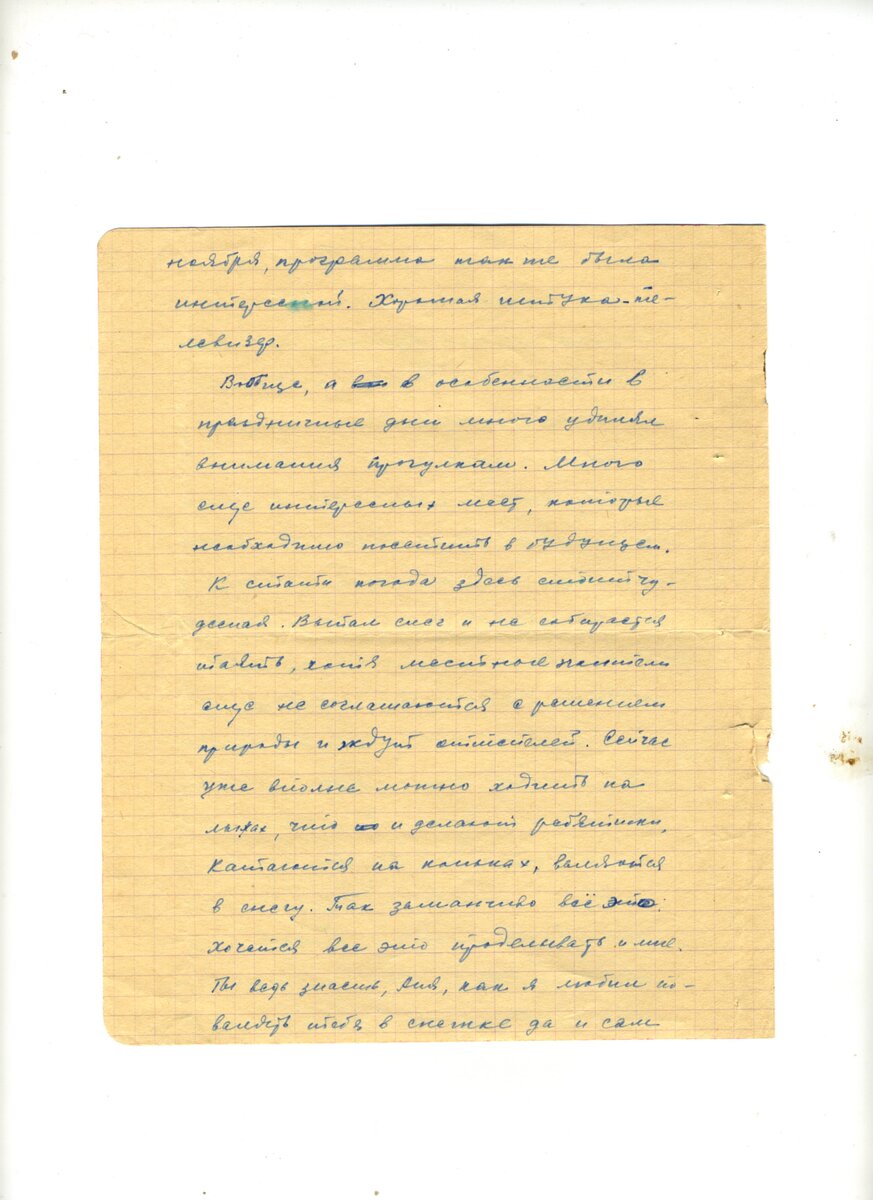 ноября, программа так же была
интересной. Хорошая штука-те-
левизор.
Вообще, а в особенности в
праздничные дни много уделял
внимания прогулкам. Много
еще интересных мест, которые
необходимо посетить в будущем.
К стати погода здесь стоит чу-
десная. Выпал снег и не собирается
таять, хотя местные жители
еще не соглашаются с решением
природы и ждут оттепелей. Сейчас
уже вполне можно ходить на
лыжах, что и делают ребятишки,
катаются на коньках, валяются
в снегу. Так заманчиво всё это:
хочется все это проделывать и мне.
Ты ведь знаешь, Аня, как я любил по-
валять тебя в снежке да и сам